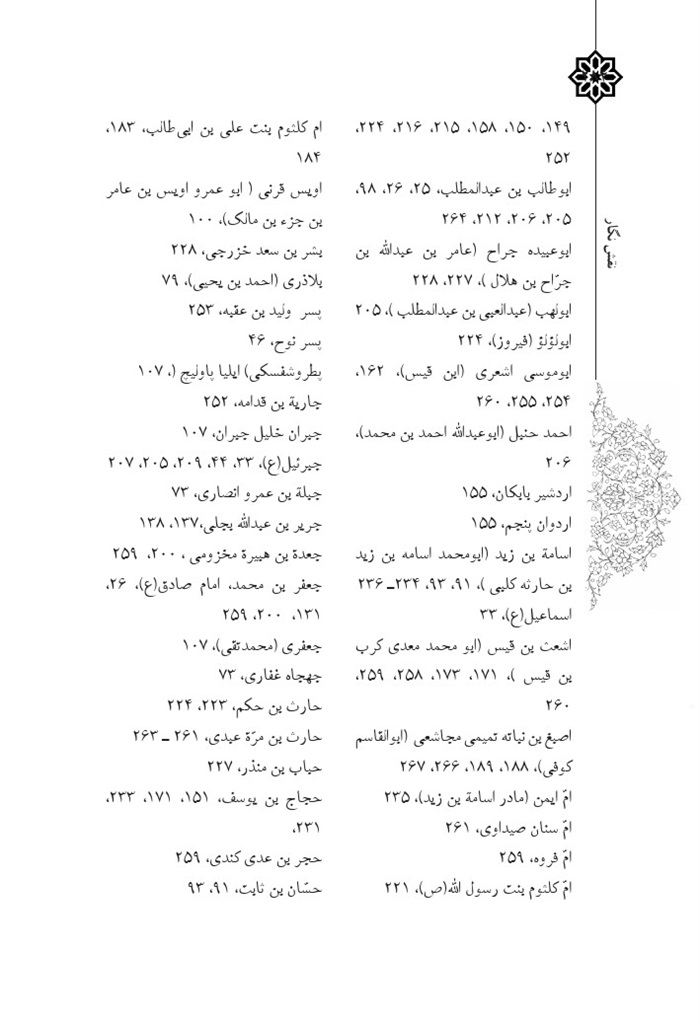 نقش نگار
۱۴۹، ۱۵۰، ۱۵۸، ۲۱۵، ۲۱۶، ۲۲۴،
۲۵۲
ابوطالب بن عبدالمطلب، ۲۵، ۲۶، ۹۸،
۲۰۵، ۲۰۶، ۲۱۲، ۲۶۴
ابوعبیده جراح (عامر بن عبدالله بن
جرّاح بن هلال )، ۲۲۷، ۲۲۸
ابولهب (عبدالعبی بن عبدالمطلب )، ۲۰۵
ابولؤلؤ (فیروز)، ۲۲۴
ابوموسی اشعری (ابن قیس)، ۱۶۲،
۲۵۴، ۲۵۵، ۲۶۰
احمد حنبل (ابوعبدالله احمد بن محمد)،
۲۰۶
اردشیر بابکان، ۱۵۵
اردوان پنجم، ۱۵۵
اسامة بن زید (ابومحمد اسامه بن زید
بن حارثه کلبی )، ۹۱، ۹۳، ۲۳۴ـ ۲۳۶
اسماعیل(ع)، ۳۳
اشعث بن قیس (ابو محمد معدی کرب
بن قیس )، ۱۷۱، ۱۷۳، ۲۵۸، ۲۵۹،
۲۶۰
اصبغ بن نباته تمیمی مجاشعی (ابوالقاسم
کوفی)، ۱۸۸، ۱۸۹، ۲۶۶، ۲۶۷
امّ ایمن (مادر اسامة بن زید)، ۲۳۵
امّ سنان صیداوی، ۲۶۱
امّ فروه، ۲۵۹
امّ کلثوم بنت رسول الله(ص)، ۲۲۱
ام کلثوم بنت علی بن ابی‌طالب، ۱۸۳،
۱۸۴
اویس قرنی ( ابو عمرو اویس بن عامر
بن جزء بن مالک)، ۱۰۰
بشر بن سعد خزرجی، ۲۲۸
بلاذری (احمد بن یحیی)، ۷۹
پسر ولید بن عقبه، ۲۵۳
پسر نوح، ۴۶
پطروشفسکی) ایلیا پاولیچ (، ۱۰۷
جاریة بن قدامه، ۲۵۲
جبران خلیل جبران، ۱۰۷
جبرئیل(ع)، ۳۳، ۴۴، ۲۰۹، ۲۰۵، ۲۰۷
جبلة بن عمرو انصاری، ۷۳
جریر بن عبدالله بجلی،۱۳۷، ۱۳۸
جعدة بن هبیرة مخزومی ، ۲۰۰، ۲۵۹
جعفر بن محمد، امام صادق(ع)، ۲۶،
۱۳۱، ۲۰۰، ۲۵۹
جعفری (محمدتقی)، ۱۰۷
جهجاه غفاری، ۷۳
حارث بن حکم، ۲۲۳، ۲۲۴
حارث بن مرّة عبدی، ۲۶۱ ـ ۲۶۳
حباب بن منذر، ۲۲۷
حجاج بن یوسف، ۱۵۱، ۱۷۱، ۲۳۳،
۲۳۱،
حجر بن عدی کندی، ۲۵۹
حسّان بن ثابت، ۹۱، ۹۳